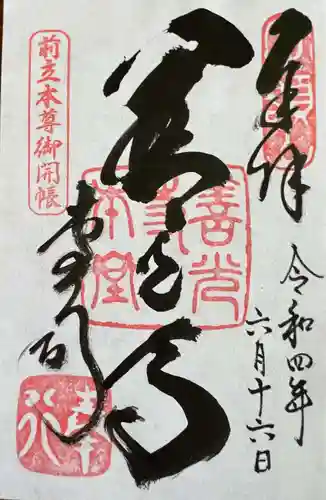 奉拝
令和四年
六月十六日
善光寺
善光
寺
本堂
前立本尊御開帳